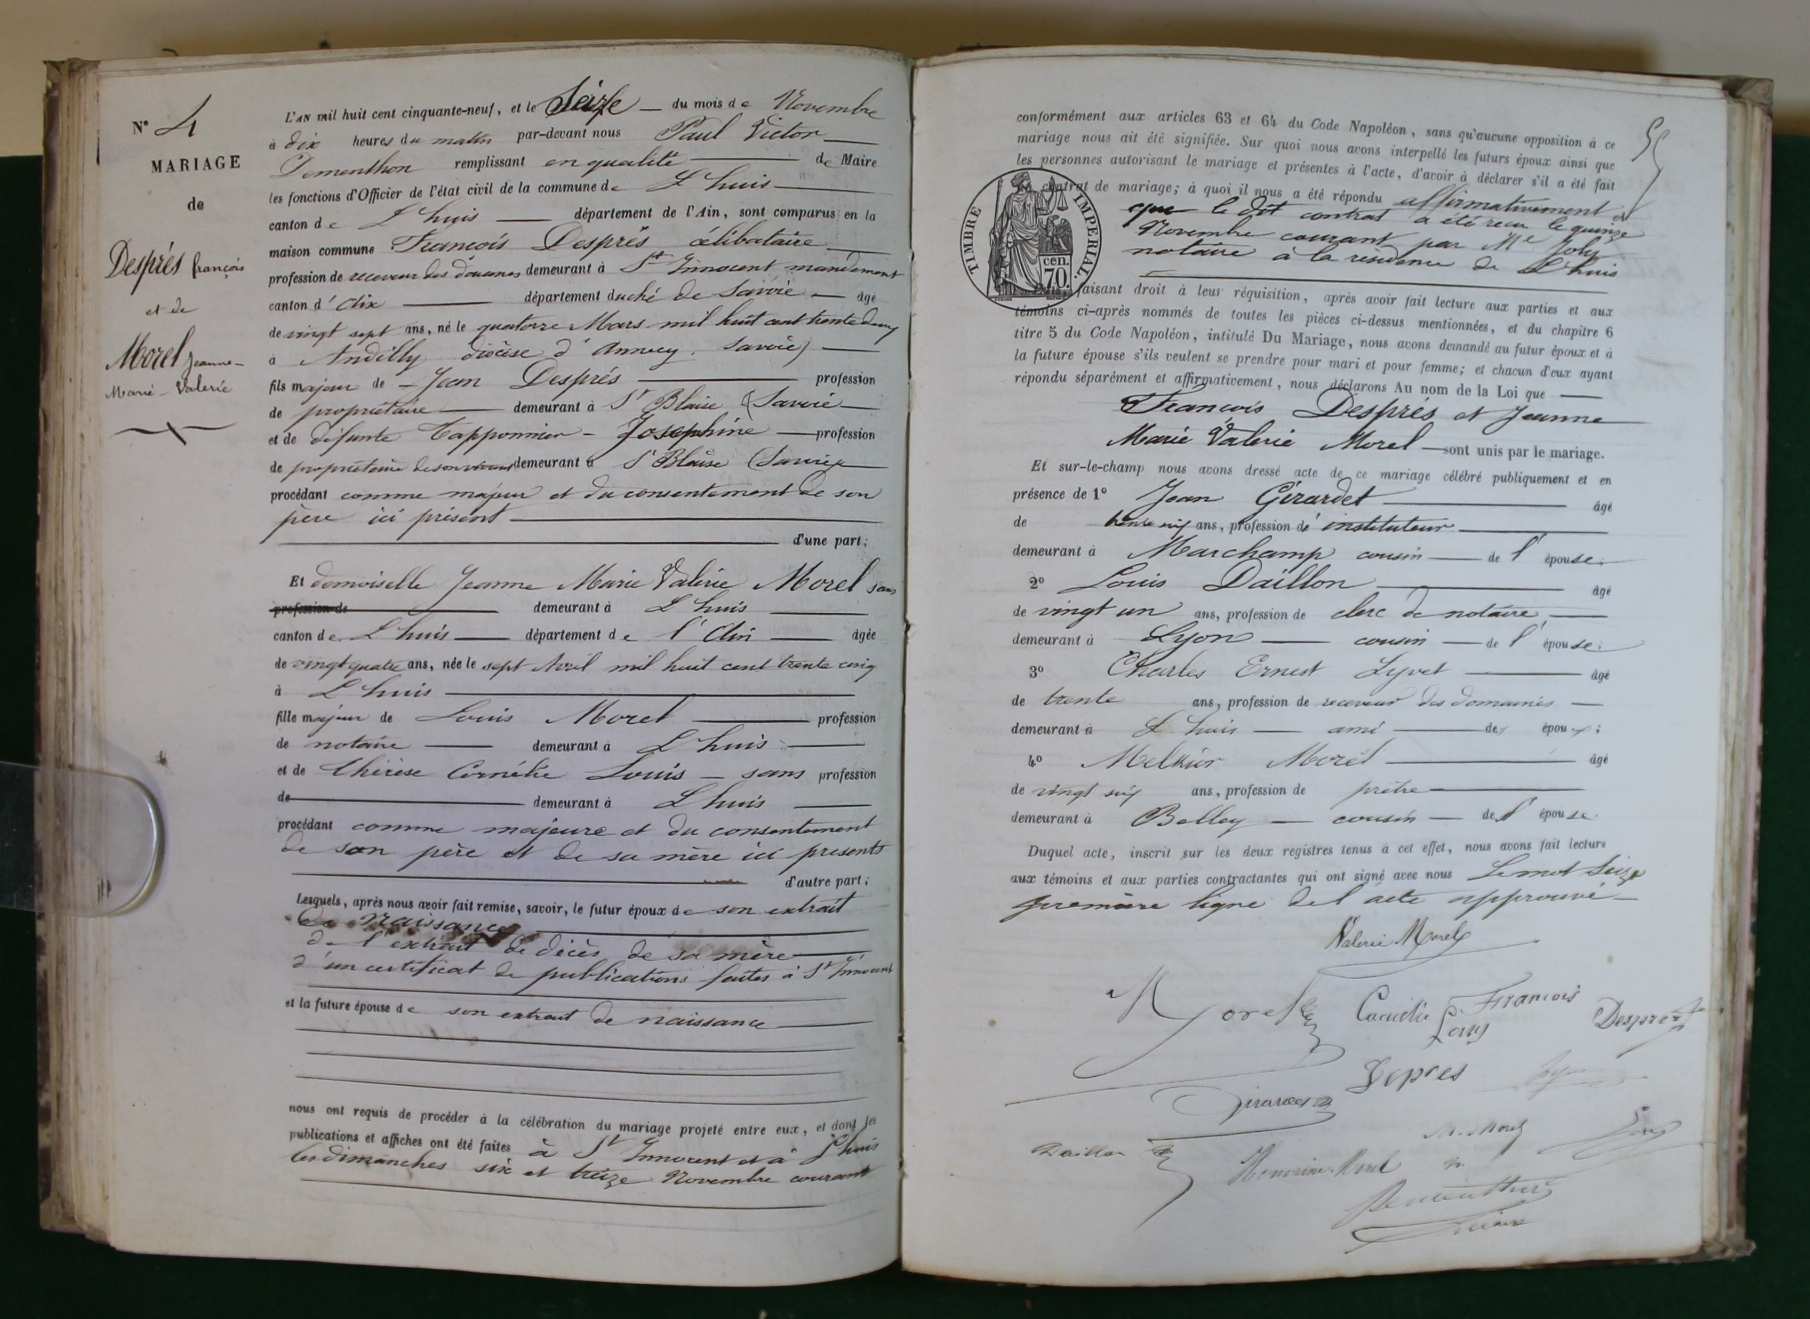 N° 4
MARIAGE
de
Després françois
et de
Morel Jeanne-
Marie-Valerie
L'AN mil huit cent cinquante-neuf, et le Seize du mois de Novembre
à dix heures du matin par-devant nous Paul Victor
Dementhon remplissant en qualité de Maire
les fonctions d'Officier de l'état civil de la commune de L'huis
canton de L'huis département de l'Ain, sont comparus en la
maison commune François Després célibataire
profession de receveur des douanes demeurant à St Innocent mandement
canton d'Aix département duché de Savoie âgé
de vingt sept ans, né le quatorze Mars mil huit cent trente deux
à Andilly diocèse d'Annecy. Savoie)
fils majeur de Jean Després profession
de propriétaire demeurant à St Blaise (Savoie
et de défunte Tapponnier - Josephine profession
de propriétaire de son vivant demeurant à St Blaise (Savoie
procédant comme majeur et du consentement de son
père ici présent
d'une part;
Et demoiselle Jeanne Marie Valérie Morel sans
profession de demeurant à L'huis
canton de L'huis département de l'Ain âgée
de vingt quatre ans, née le sept Avril mil huit cent trente cinq
à L'huis
fille majeur de Louis Morel profession
de notaire demeurant à L'huis
et de Thérèse Cornélie Louis - sans profession
de demeurant à L'huis
procédant comme majeure et du consentement
de son père et de sa mère ici presents
d'autre part;
Lesquels, après nous avoir fait remise, savoir, le futur époux de son extrait
de naissance
de l'extrait de décès de sa mère
d'un certificat de publications faites à St Innocent
et la future épouse de son extrait de naissance
nous ont requis de procéder à la célébration du mariage projeté entre eux, et dont les
publications et affiches ont été faites à St Innocent et à L'huis
les dimanches six et treize Novembre courant
conformément aux articles 63 et 64 du Code Napoléon, sans qu'aucune opposition à ce
mariage nous ait été signifiée. Sur quoi nous avons interpellé les futurs époux ainsi que
les personnes autorisant le mariage et présentes à l'acte, d'avoir à déclarer s'il a été fait
contrat de mariage; à quoi il nous a été répondu affirmativement et
que le dit contrat a été reçu le quinze
Novembre courant par Me Joly
notaire à la résidence de L'huis
TIMBRE IMPERIAL.
cen.
70.
faisant droit à leur réquisition, après avoir fait lecture aux parties et aux
témoins ci-après nommés de toutes les pièces ci-dessus mentionnées, et du chapitre 6
titre 5 du Code Napoléon, intitulé Du Mariage, nous avons demandé au futur époux et à
la future épouse s'ils veulent se prendre pour mari et pour femme; et chacun d'eux ayant
répondu séparément et affirmativement, nous déclarons Au nom de la Loi que
François Després et Jeanne
Marie Valerie Morel sont unis par le mariage.
Et sur-le-champ nous avons dressé acte de ce mariage célébré publiquement et en
présence de 1° Jean Girardet âgé
de trente six ans, profession d'instituteur
demeurant à Marchamp cousin de l'épouse;
2° Louis Daillon âgé
de vingt un ans, profession de clerc de notaire
demeurant à Lyon cousin de l'épouse;
3° Charles Ernest Lyvet âgé
de trente ans, profession de receveur des domaines
demeurant à L'huis ami des époux;
4° Melkior Morel âgé
de vingt six ans, profession de prêtre
demeurant à Belley cousin de l'épouse.
Duquel acte, inscrit sur les deux registres tenus à cet effet, nous avons fait lecture
aux témoins et aux parties contractantes qui ont signé avec nous Le mot Seize
première ligne de l'acte approuvé
Valerie Morel
Morel
François
Louis
Despres
Depres
Girardet
M. Morel
Daillon
Honorine Morel
Dementhon
maire